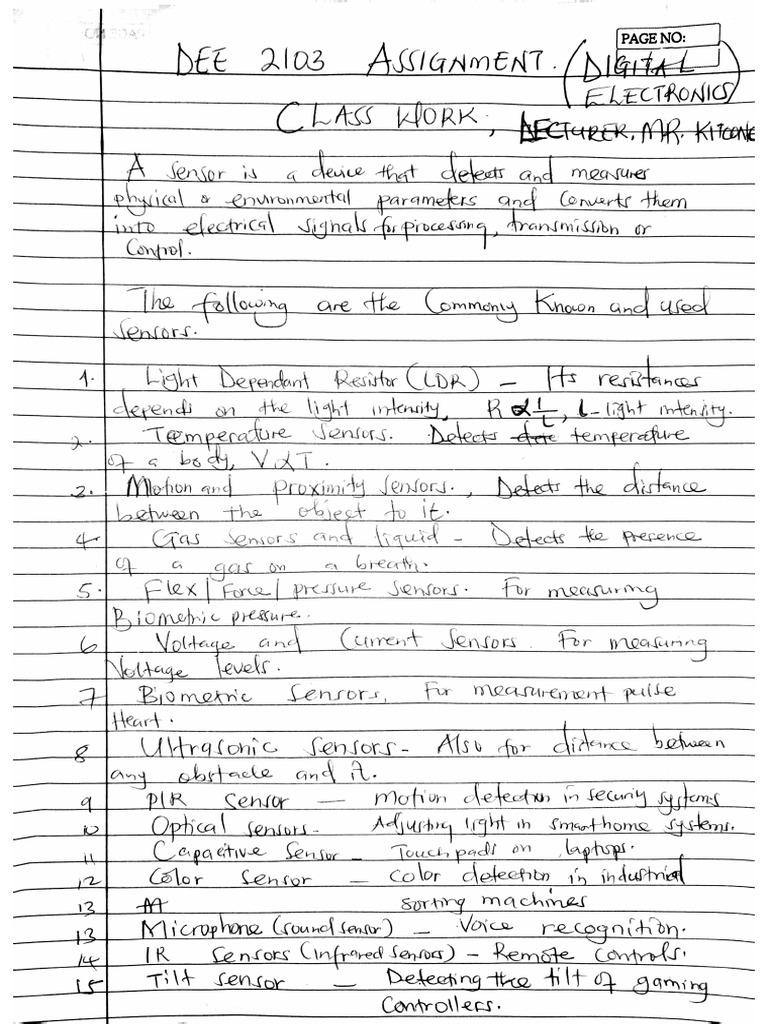 PAGE NO:
DEE 2103 ASSIGNMENT. (DIGITAL
ELECTRONICS)
CLASS WORK, LECTURER. MR. 
A sensor is a device that detects and measures
physical & environmental parameters and converts them
into electrical signals for processing, transmission or
Control.
The following are the Commonly Known and used
sensors.
1. Light Dependant Resistor (LDR) - Its resistances
depends on the light intensity, R α 1/L, L-light intensity.
2. Temperature sensors. Detects temperature
of a body, V α T.
3. Motion and proximity sensors., Detects the distance
between the object to it.
4. Gas sensors and liquid - Detects the presence
of a gas on a breath.
5. Flex/Force/pressure sensors. For measuring
Biometric pressure.
6 Voltage and Current sensors. For measuring
Voltage levels.
7 Biometric Sensors, For measurement pulse
Heart.
8 Ultrasonic sensors- Also for distance between
any obstacle and it.
9 PIR sensor - motion detection in security systems
10 Optical sensors- Adjusting light in smarthome systems.
11 Capacitive Sensor - Touchpads on laptops.
12 Color Sensor - Color detection in industrial
13 sorting machines
13 Microphone (sound sensor) - Voice recognition.
14 IR Sensors (infrared sensors) - Remote Controls.
15 Tilt sensor - Detecting the tilt of gaming
Controllers.